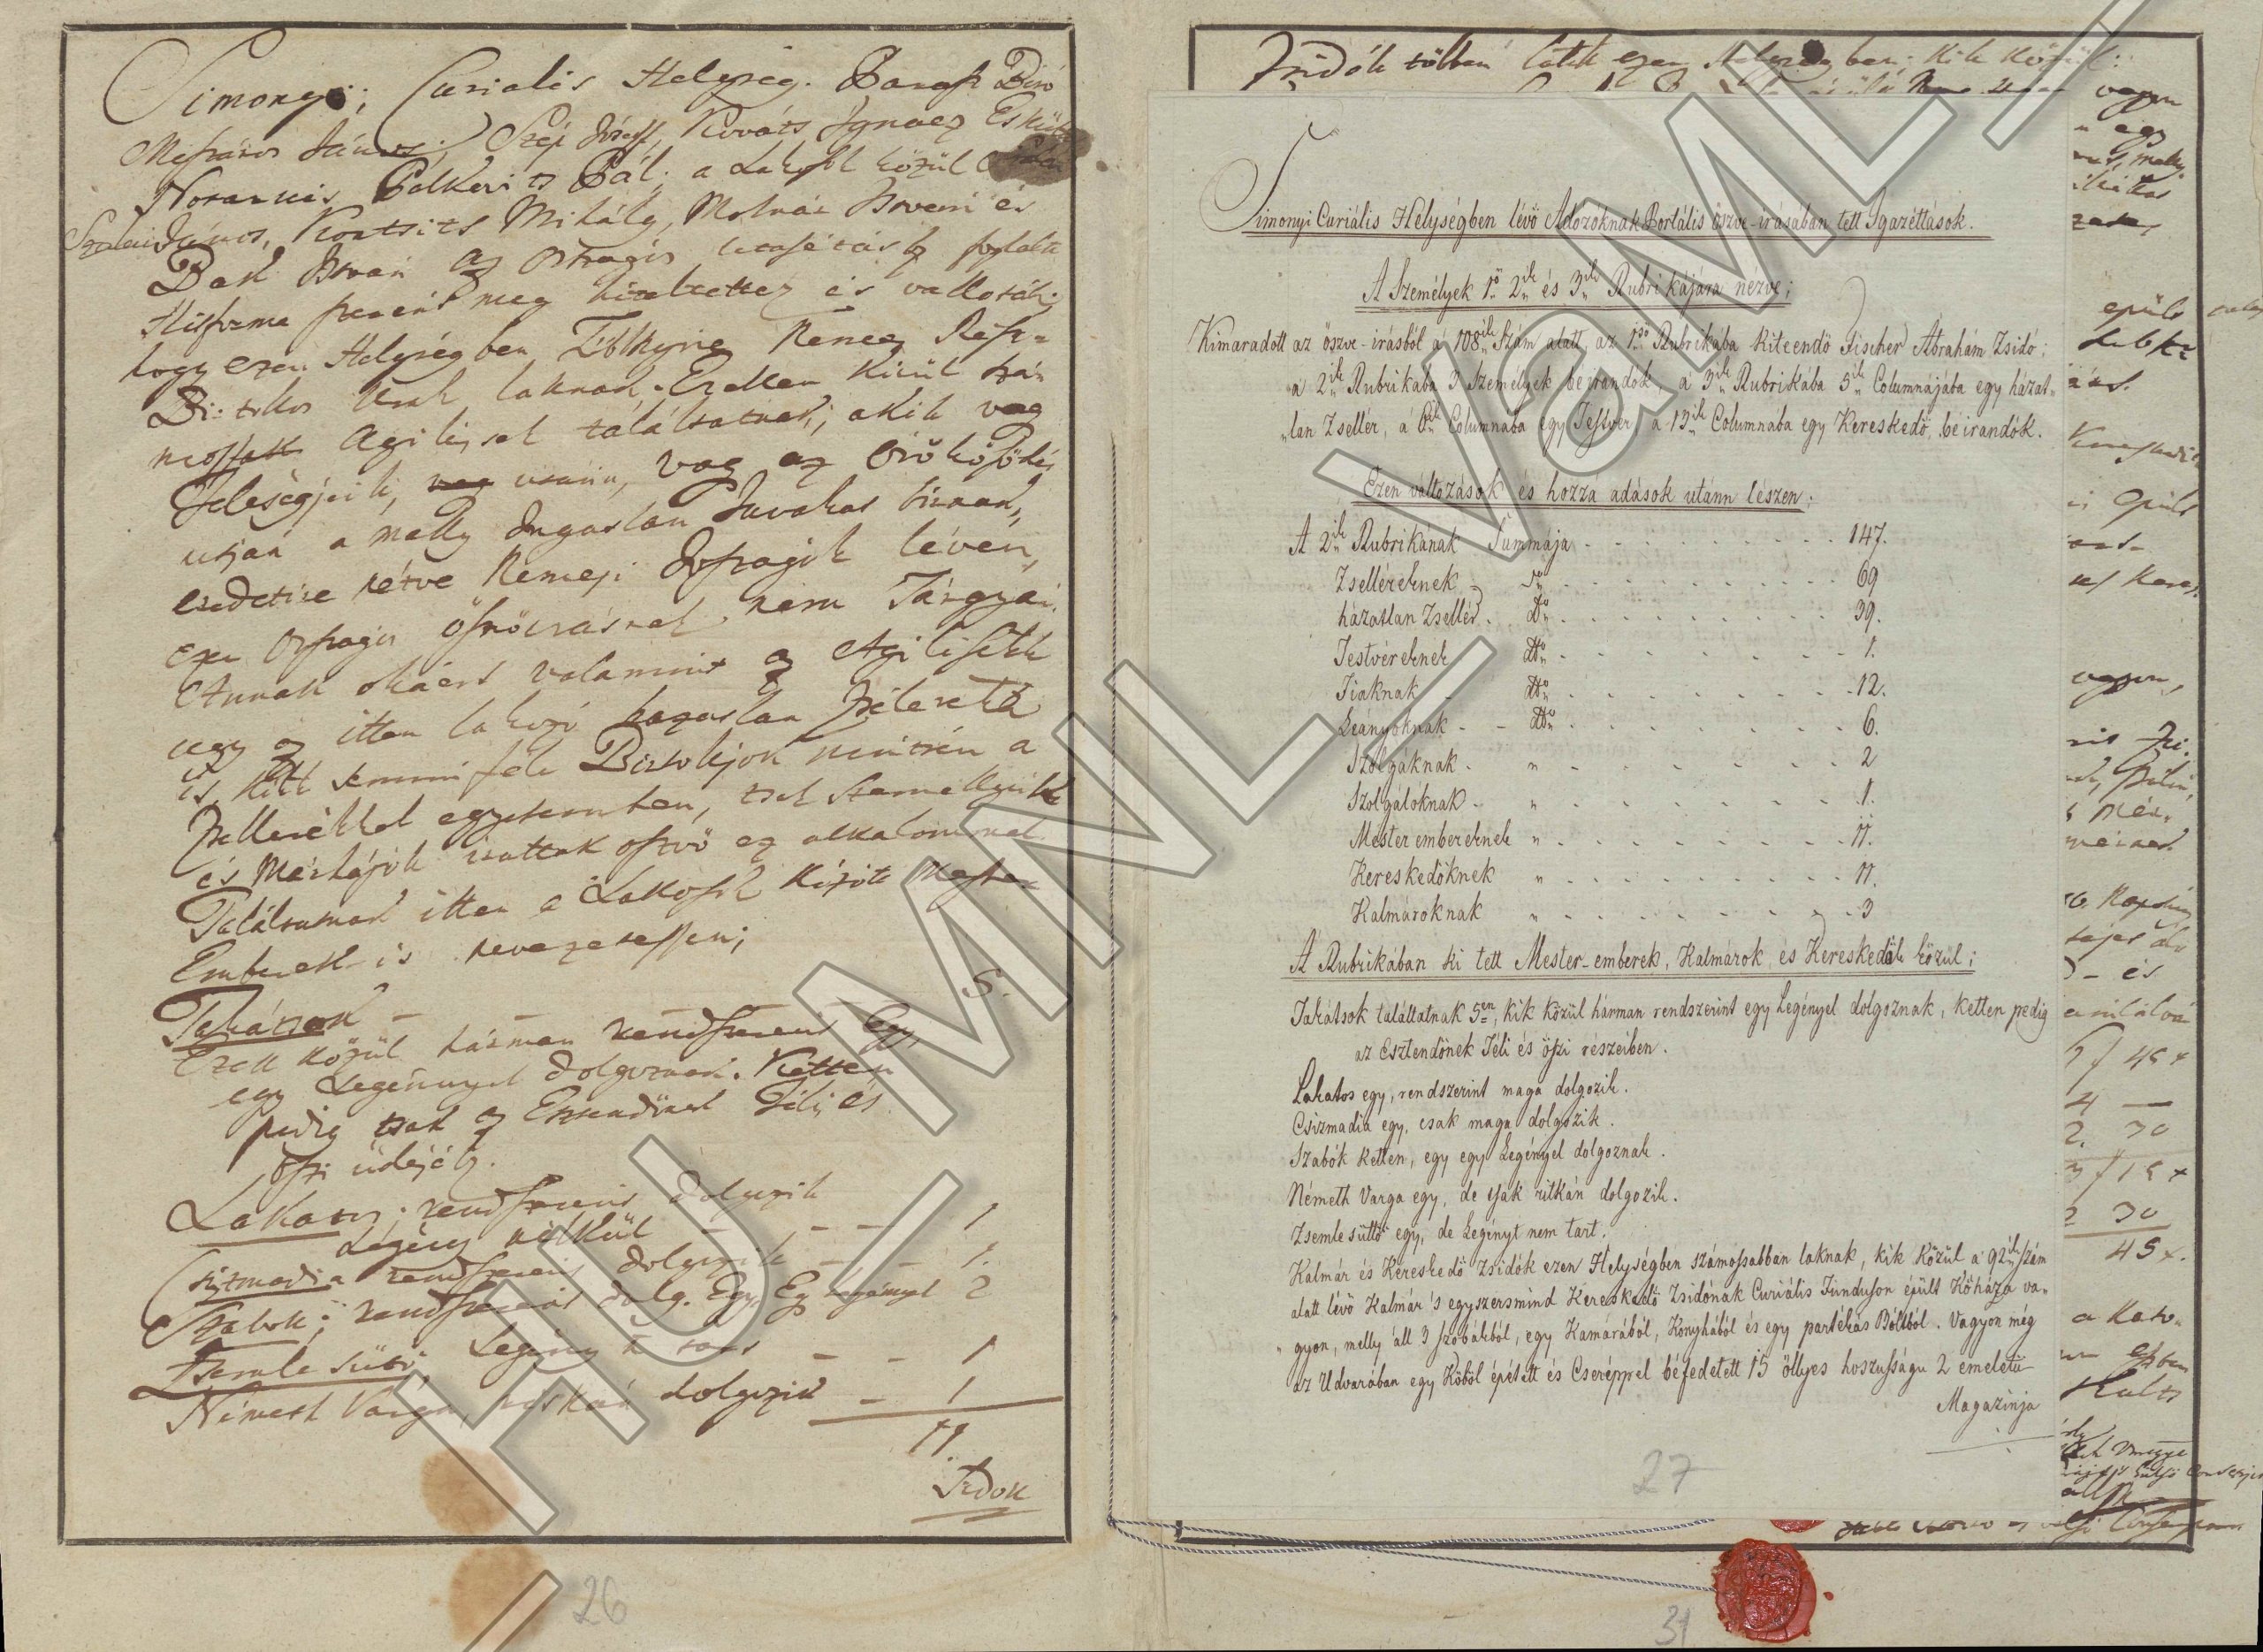 Simonyi; Curialis Helység. Paraszt Biró
Mészáros János; Szép Jósef, Kováts Ignacz Esküttek
Notarius Palkovits Pál; a Lakosok közül
Szalai János, Kortsits Mihály, Molnár István és
Bak István az Országos utasításba foglalt
Hitforma szerént meg hiteltettek és vallották;
hogy ezen Helységben Többnyire Nemes Resz=
Birtokos Urak laknak. Ezeken kivül szá=
mossak Agilisek találtatnak; akik vagy
Feleségjeik, után, vagy az örökösödés
utján a melly Ingatlan Javakat birnak,
eredetire nézve Nemesi Jószágok lévén,
ezen Országos öszöirásnak nem Tárgyai.
Annak okáért valamint az Agilisek
ugy az itten lakozó hazatlan Zsellerek
is, kik semmi féle Birtokjok nintsen a
Zsellerekkel egyetemben, tsak Személlyeik
és Marhájok irattak öszvö ez alkalommal
Találtatnak itten a Lakosok között Mester
Emberek is nevezetessen;
Takátsok - - - 5.
Ezek közül hárman rendszerint Egy,
egy Legénnyel dolgoznak. Ketten
pedig tsak az Esztendőnek Téli és
öszi üdejébe.
Lakatos; rendszerint dolgozik
Legény nélkül - - - 1
Csizmadia rendszerint dolgozik - - 1.
Szabok; rendszerint dolg. Egy, Eg Legénnyel 2
Zsemle sütő, Legény n tart - - 1
Németh Varga, ritkán dolgozik - 1
11.
Zsidók
Zsidók többen laknak ezen Helységben; Kik közül:
Simonyi Curiális Helységben lévő Adózóknak Portális öszve-irásában tett Igazéttások.
A Személyek 1ső 2ik és 3ik Rubrikájára nézve;
Kimaradott az öszve-irásból a 108ik Szám alatt, az 1ső Rubrikába kiteendö Fischer Abrahám Zsidó;
a 2ik Rubrikába 3 Személyek beirandók, a 3ik Rubrikába 5ik Columnájába egy házat-
„lan Zsellér, a 6ik Columnába egy Testvér, a 13ik Columnába egy Kereskedö, beirandók.
Ezen változások és hozzá adások utánn lészen:
A 2ik Rubrikának Summája - - - 147.
Zselléreknek do - - - 69
házatlan Zsellér do - - - 39.
Testvéreknek do - - - 1.
Fiaknak do - - - 12.
Leányoknak do - - - 6.
Szolgáknak „ - - - 2
Szolgáloknak „ - - - 1.
Mester embereknek „ - - - 11.
Kereskedöknek „ - - - 11.
Kalmároknak „ - - - 3
A Rubrikában ki tett Mester-emberek, Kalmárok, és Kereskedök közül;
Takátsok találtatnak 5en, kik közül hárman rendszerint egy Legényel dolgoznak, ketten pedig
az Esztendönek Téli és öszi részeiben.
Lakatos egy, rendszerint maga dolgozik.
Csizmadia egy, csak maga dolgozik.
Szabók ketten, egy egy Legényel dolgoznak.
Németh Varga egy, de tsak ritkán dolgozik.
Zsemle süttö egy, de Legényt nem tart.
Kalmár és Kereskedö Zsidók ezen Helységben számossabban laknak, kik közül a 92ik szám
alatt lévö Kalmár 's egyszersmind Kereskedö Zsidónak Curiális Funduson épült Köháza va-
„gyon, melly áll 3 szobákból, egy Kamárából, Konyhából és egy portékás Bóltból. Vagyon még
az Udvarában egy Köböl épétett és Cseréppel béfedetett 15 öllyes hoszuságu 2 emeletü
Magazinja
vagyon
egy
melly
épült
vagyon,
és
45 x
4 —
2. 30
3 f 15 x
2 30
45 x.
26
27
31
HU MNL VaML